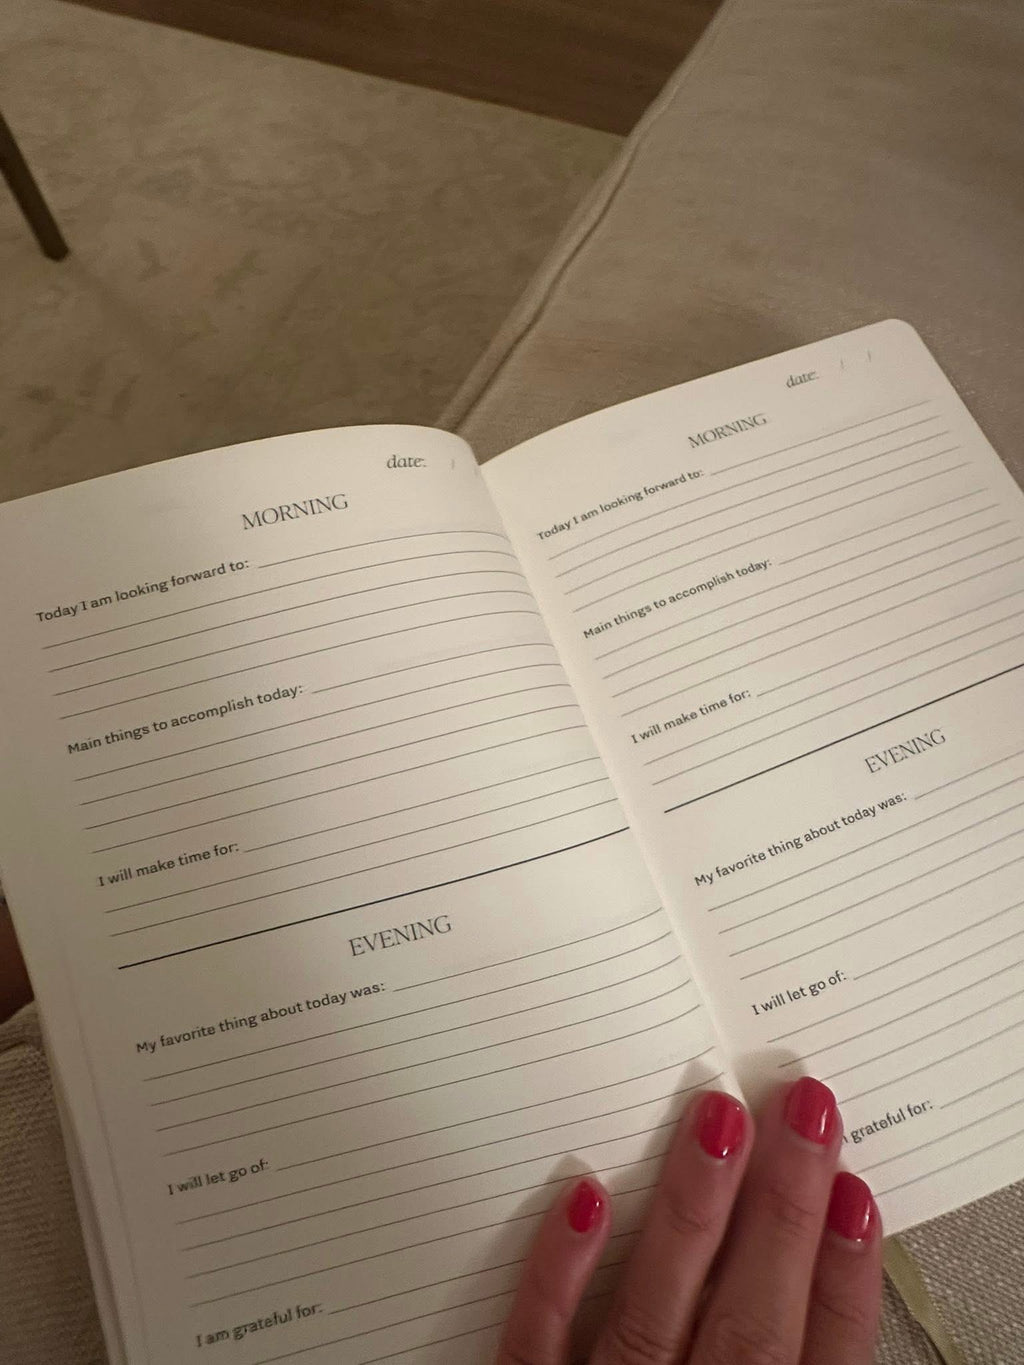 date: /
MORNING
Today I am looking forward to:
Main things to accomplish today:
I will make time for:
EVENING
My favorite thing about today was:
I will let go of:
I am grateful for:
date: / /
MORNING
Today I am looking forward to:
Main things to accomplish today:
I will make time for:
EVENING
My favorite thing about today was:
I will let go of:
grateful for: